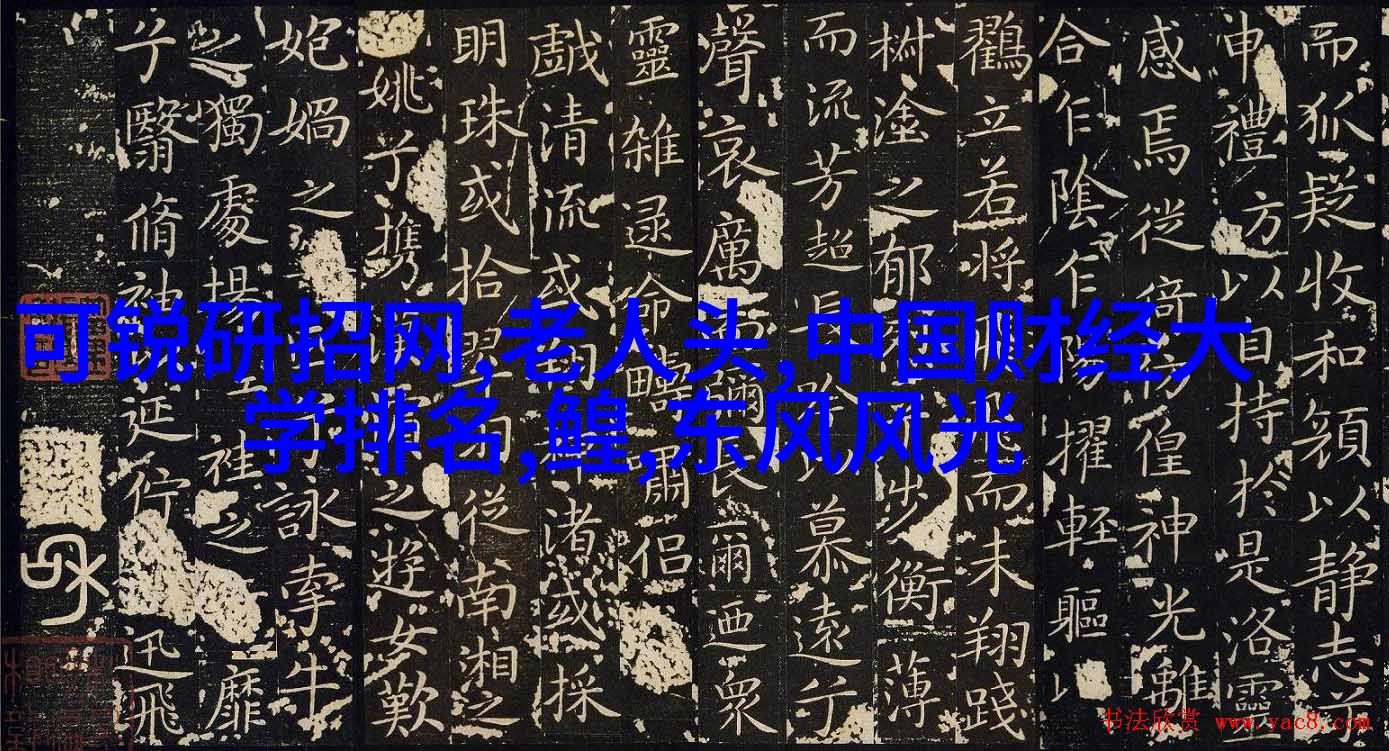 可锐研招网,老人头,中国财经大
学排名,鳇,东风风光
而狐疑收和顔以静志兮
申禮方以自持於是洛靈
感焉従倚仿偟神光離
合乍陰乍陽擢輕軀以
鸖立若将飛而未翔踐
椒塗之郁步衡薄
而流芳超長吟以慕遠兮
聲哀厲而彌長爾迺衆
靈雜遝命疇嘯侣
戯清流或翔渚或採
明珠或拾翠羽従南湘之
姚兮攜之遊女歎
妃媧之兮詠牽牛
之獨處揚袿之靡
兮翳脩袖延佇
迅飛
书法欣赏 www.yac8.com